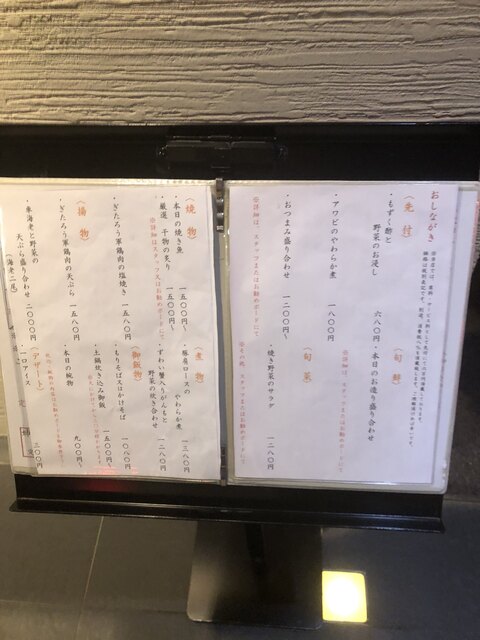 おしながき
〈先付〉
・もずく酢と
野菜のお浸し
六八〇円
・アワビのやわらか煮
一八〇〇円
・おつまみ盛り合わせ
一二〇〇円〜
※詳細は、スタッフまたはお勧めボードにて
〈旬鮮〉
・本日のお造り盛り合わせ
※詳細は、スタッフまたはお勧めボードにて
〈旬菜〉
・焼き野菜のサラダ
一二八〇円
※その他、スタッフまたはお勧めボードにて
〈焼物〉
・本日の焼き魚
一五〇〇円〜
・厳選 干物の炙り
一五〇〇円〜
※詳細は、スタッフ又はお勧めボードにて
・ぎたろう軍鶏肉の塩焼き
一五八〇円
〈揚物〉
・ぎたろう軍鶏肉の天ぷら
一五八〇円
・車海老と野菜の
天ぷら盛り合わせ
二〇〇〇円
(海老二尾)
〈煮物〉
・豚肩ロースの
やわらか煮
一三八〇円
・ずわい蟹入りがんもと
野菜の炊き合わせ
一二八〇円
〈御飯物〉
・もりそば又はかけそば
一〇八〇円
・土鍋炊き込み御飯
一五〇〇円〜
・本日の椀物
九〇〇円〜
〈デザート〉
・一口アイス
三〇〇円